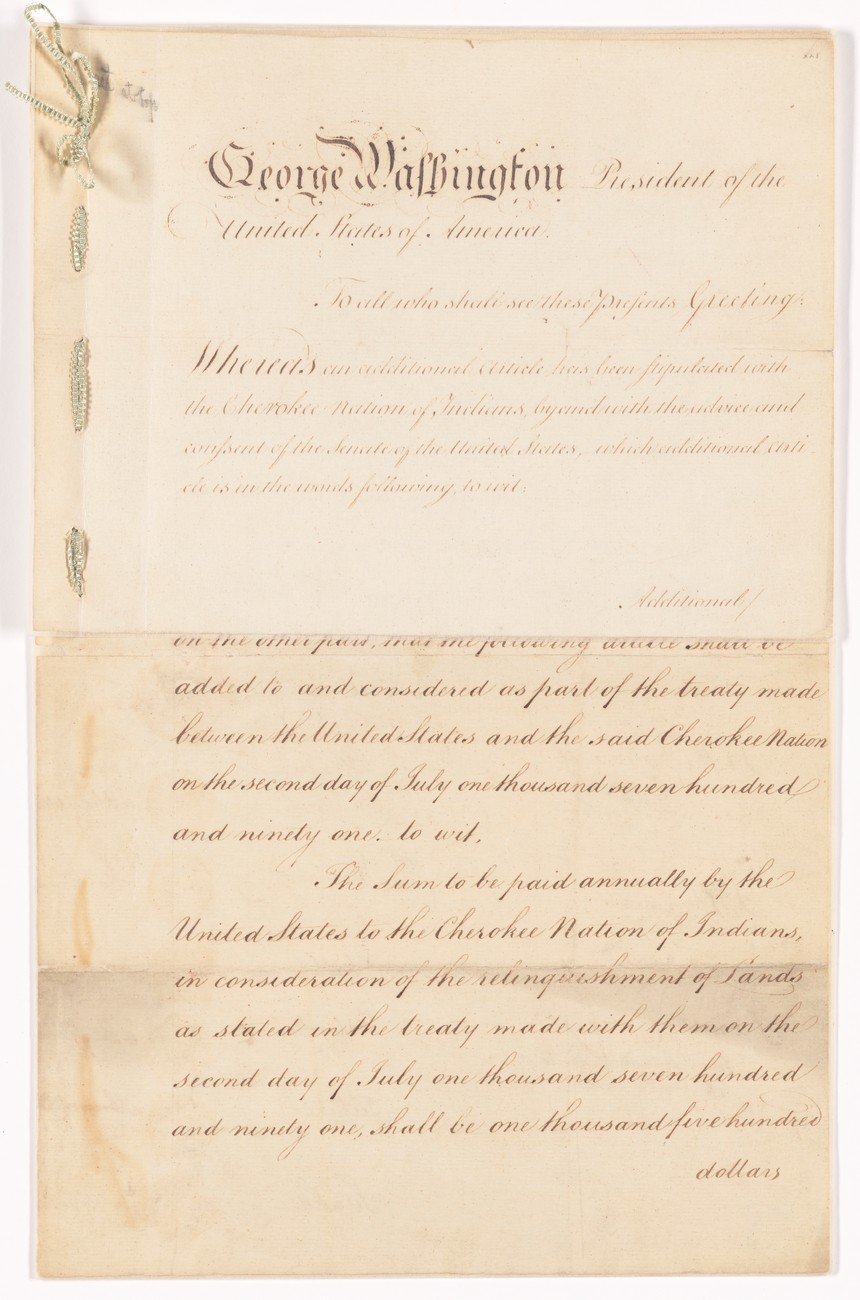 George Washington President of the
United States of America.
To all who shall see these Presents Greeting:
Whereas an additional Article has been stipulated with
the Cherokee Nation of Indians, by and with the advice and
consent of the Senate of the United States, which additional Arti
cle is in the words following, to wit:
Additional/
on the other part, that the following article shall be
added to and considered as part of the treaty made
between the United States and the said Cherokee Nation
on the second day of July one thousand seven hundred
and ninety one. to wit,
The Sum to be paid annually by the
United States to the Cherokee Nation of Indians,
in consideration of the relinquishment of Lands
as stated in the treaty made with them on the
second day of July one thousand seven hundred
and ninety one, shall be one thousand five hundred
dollars